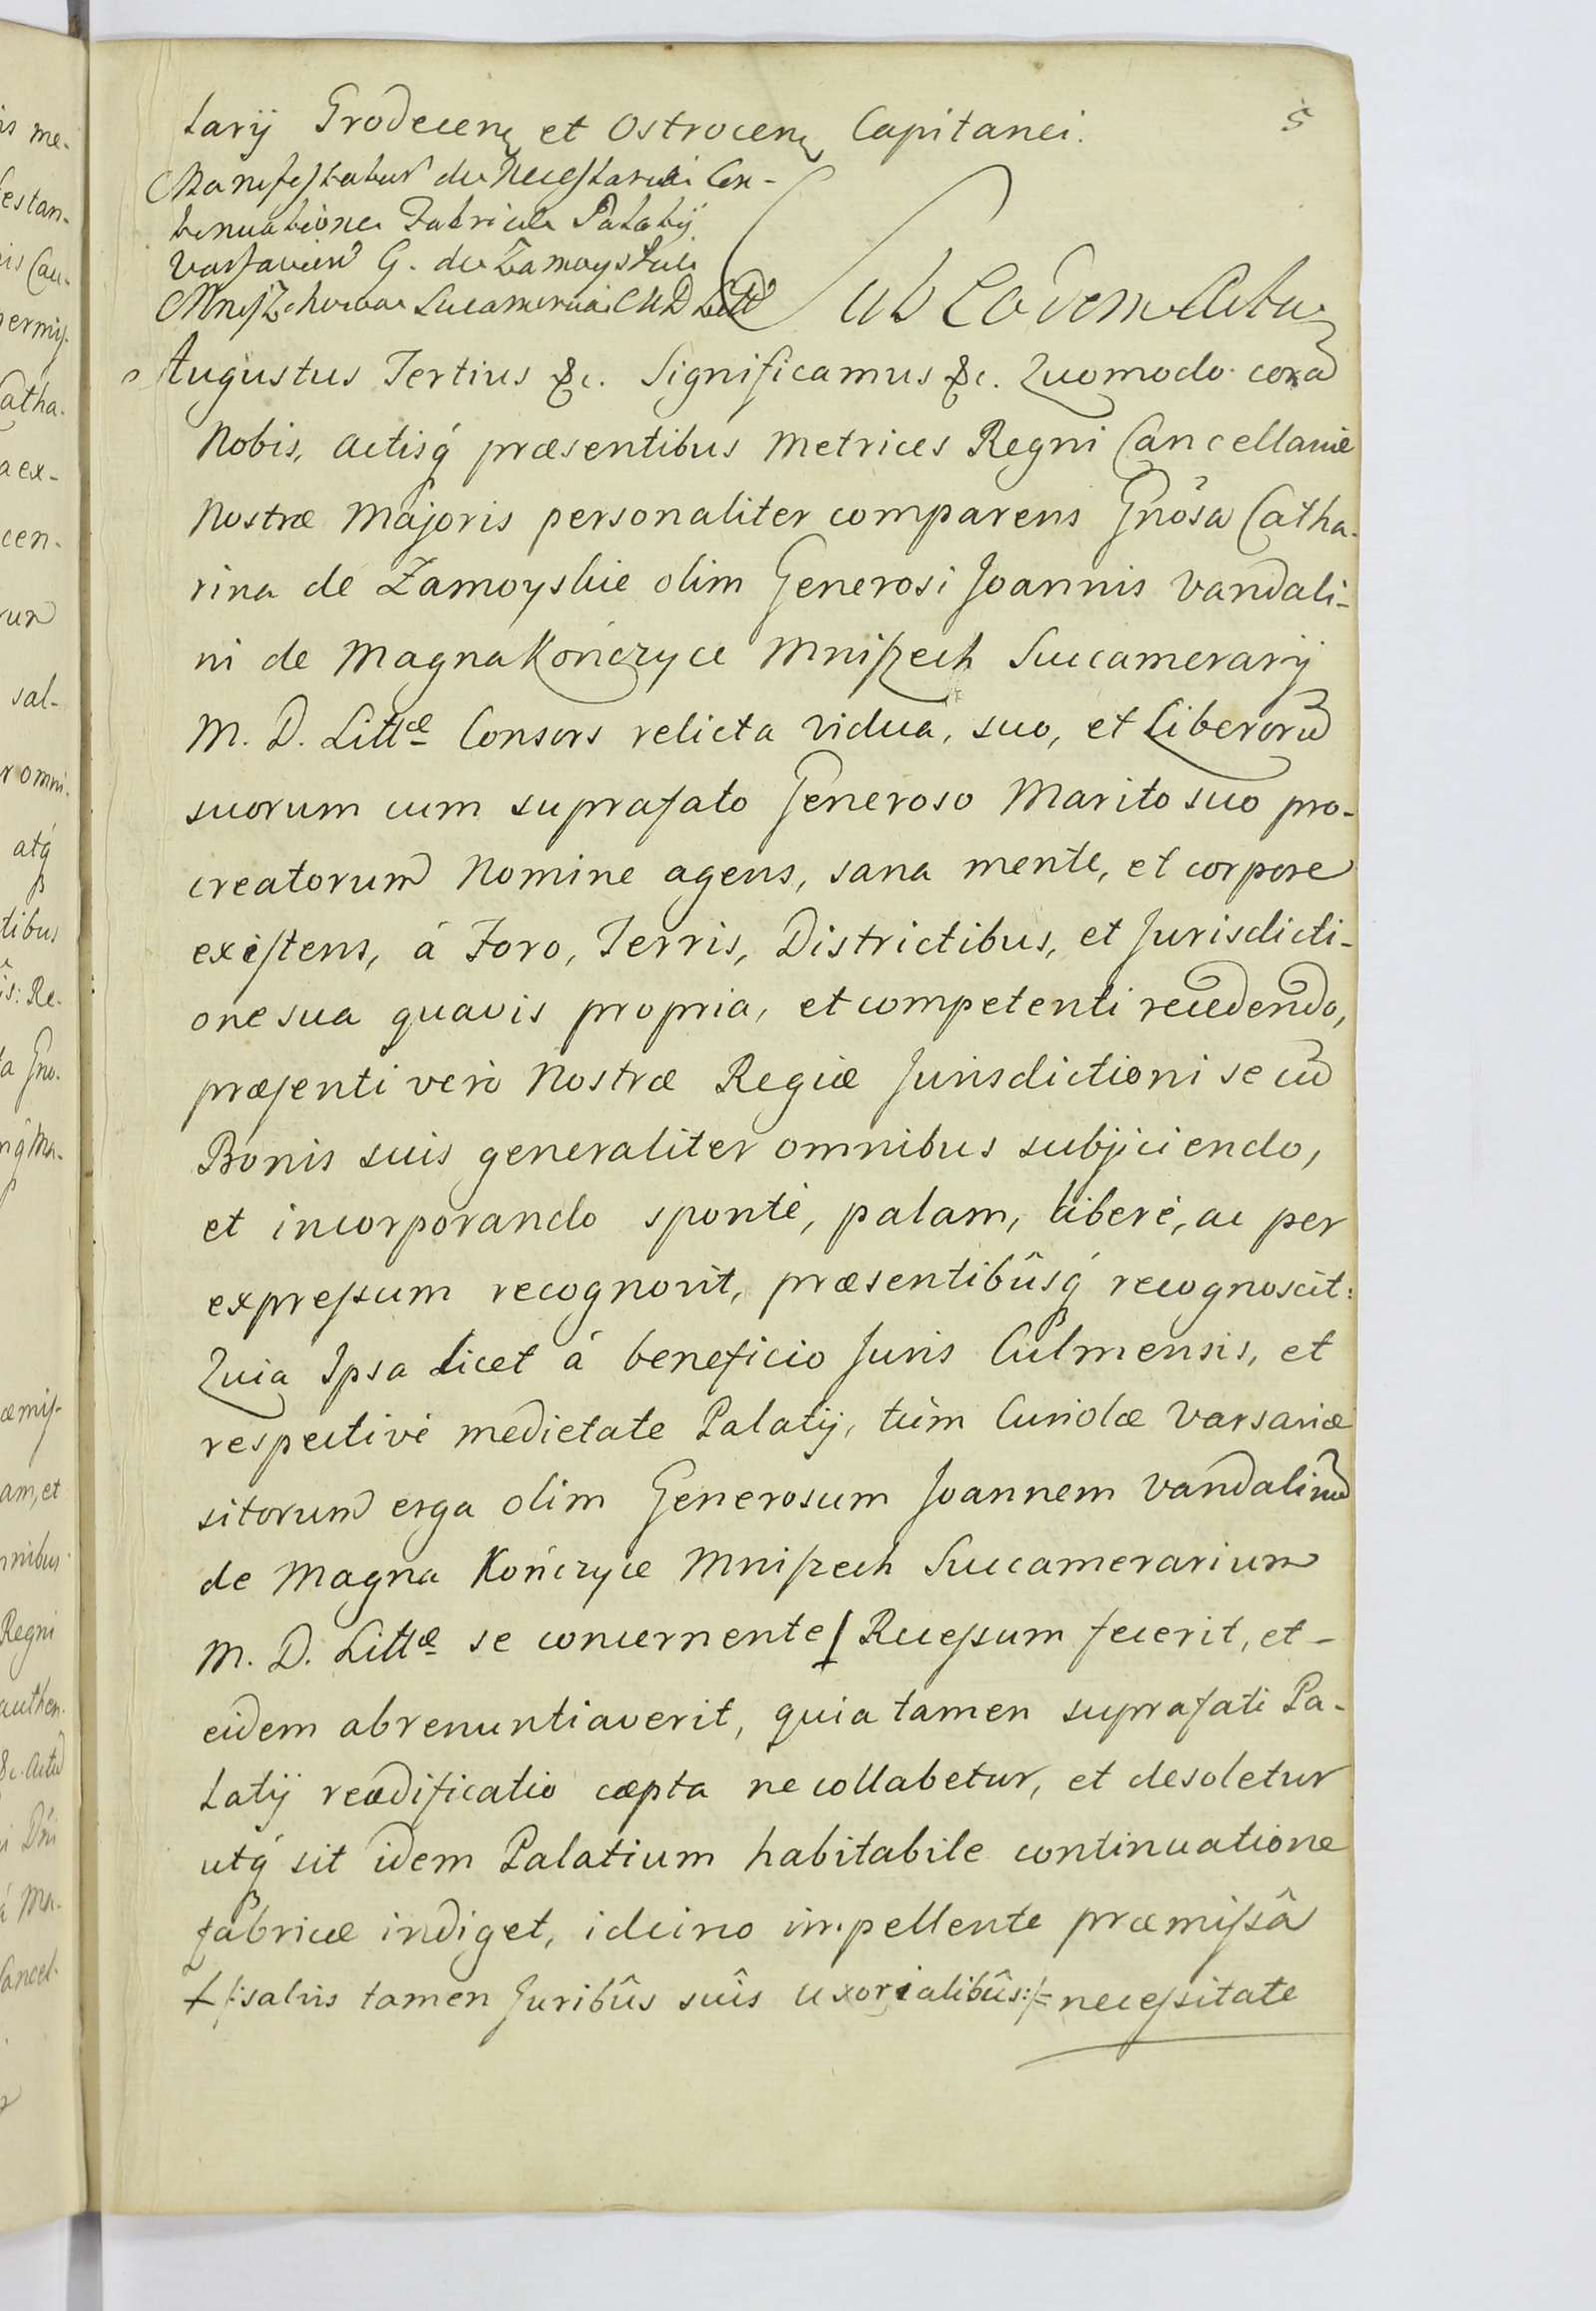 5
tarij Grodecen et Ostrocen Capitanei.
Manifestatur de Necessaria Con-
tinuatione Fabricæ Palatij
Varsavien G. de Zamoyskie
Mniszchowa Succameraria M D Litt
Sub Eodem Actu
Augustus Tertius &c. Significamus &c. Quomodo corã
Nobis, Actisq́ præsentibus Metrices Regni Cancellariæ
Nostræ Majoris personaliter comparens Gnõsa Catha-
rina de Zamoyskie olim Generosi Joannis Vandali-
ni de Magna Kończyce Mniszech Succamerarij
M. D. Littæ Consors relicta vidua, suo, et Liberorũ
suorum cum suprafato Generoso Marito suo pro-
creatorum Nomine agens, sana mente, et corpore
existens, á Foro, Terris, Districtibus, et Jurisdicti-
one sua quavis propria, et competenti recedendo,
præsenti verò Nostræ Regiæ Jurisdictioni se cũ
Bonis suis generaliter omnibus subjiciendo,
et incorporando sponté, palam, liberé, ac per
expressum recognovit, præsentibûsq́ recognoscit:
Quia Ipsa licet á beneficio Juris Culmensis, et
respectivé medietate Palatij, tùm Curiolæ Varsaviæ
sitorum erga olim Generosum Joannem Vandalinũ
de Magna Kończyce Mniszech Succamerarium
M. D. Littæ se concernente ⌡ Recessum fecerit, et-
eidem abrenuntiaverit, quia tamen suprafati Pa-
latij reædificatio cæpta ne collabetur, et desoletur
utq́ sit idem Palatium habitabile continuatione
fabricæ indiget, idcirco impellente præmissâ
⌡ /:salvis tamen Juribûs suîs uxorialibûs:/= necessitate